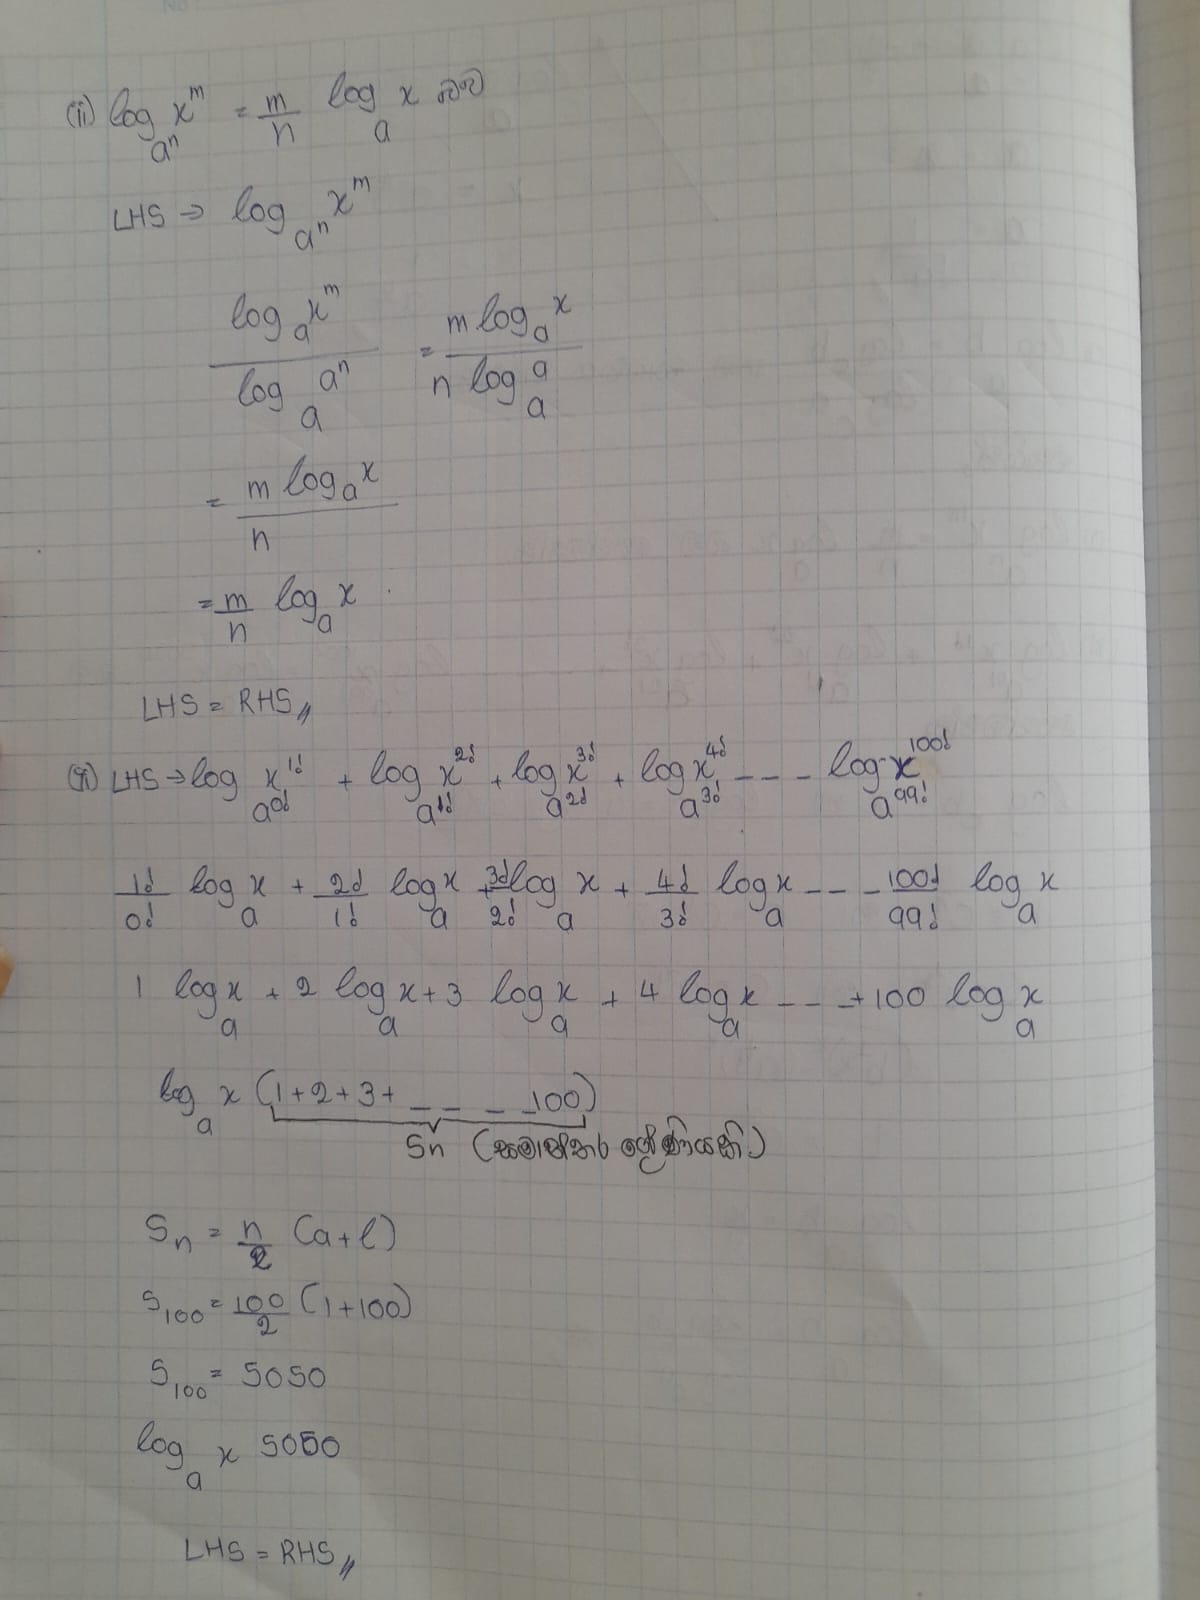 (ii) log_{aⁿ} xᵐ = m/n log_a x බව
LHS ⇒ log_{aⁿ} xᵐ
log_a xᵐ / log_a aⁿ = m log_a x / n log_a a
= m log_a x / n
= m/n log_a x
LHS = RHS //
LHS ⇒ log_{a^{0!}} x^{1!} + log_{a^{1!}} x^{2!} + log_{a^{2!}} x^{3!} + log_{a^{3!}} x^{4!} - - - log_{a^{99!}} x^{100!}
1!/0! log_a x + 2!/1! log_a x + 3!/2! log_a x + 4!/3! log_a x - - - 100!/99! log_a x
1 log_a x + 2 log_a x + 3 log_a x + 4 log_a x - - - + 100 log_a x
log_a x (1 + 2 + 3 + _ _ _ _ 100)
Sn (සමාන්තර ශ්‍රේණියකි)
Sₙ = n/2 (a + l)
S₁₀₀ = 100/2 (1 + 100)
S₁₀₀ = 5050
log_a x 5050
LHS = RHS //